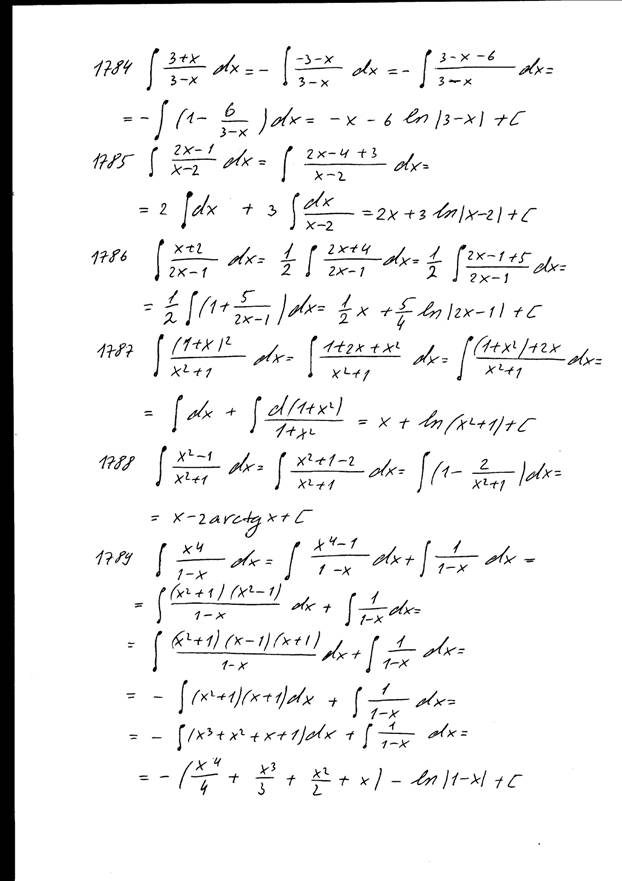 1784 ∫ (3+x)/(3-x) dx = - ∫ (-3-x)/(3-x) dx = - ∫ (3-x-6)/(3-x) dx =
= - ∫ (1 - 6/(3-x)) dx = -x - 6 ln|3-x| + C
1785 ∫ (2x-1)/(x-2) dx = ∫ (2x-4+3)/(x-2) dx =
= 2 ∫ dx + 3 ∫ dx/(x-2) = 2x + 3 ln|x-2| + C
1786 ∫ (x+2)/(2x-1) dx = 1/2 ∫ (2x+4)/(2x-1) dx = 1/2 ∫ (2x-1+5)/(2x-1) dx =
= 1/2 ∫ (1 + 5/(2x-1)) dx = 1/2 x + 5/4 ln|2x-1| + C
1787 ∫ (1+x)²/(x²+1) dx = ∫ (1+2x+x²)/(x²+1) dx = ∫ ((1+x²)+2x)/(x²+1) dx =
= ∫ dx + ∫ d(1+x²)/(1+x²) = x + ln(x²+1) + C
1788 ∫ (x²-1)/(x²+1) dx = ∫ (x²+1-2)/(x²+1) dx = ∫ (1 - 2/(x²+1)) dx =
= x - 2 arctg x + C
1789 ∫ x⁴/(1-x) dx = ∫ (x⁴-1)/(1-x) dx + ∫ 1/(1-x) dx =
= ∫ (x²+1)(x²-1)/(1-x) dx + ∫ 1/(1-x) dx =
= ∫ (x²+1)(x-1)(x+1)/(1-x) dx + ∫ 1/(1-x) dx =
= - ∫ (x²+1)(x+1) dx + ∫ 1/(1-x) dx =
= - ∫ (x³+x²+x+1) dx + ∫ 1/(1-x) dx =
= - (x⁴/4 + x³/3 + x²/2 + x) - ln|1-x| + C